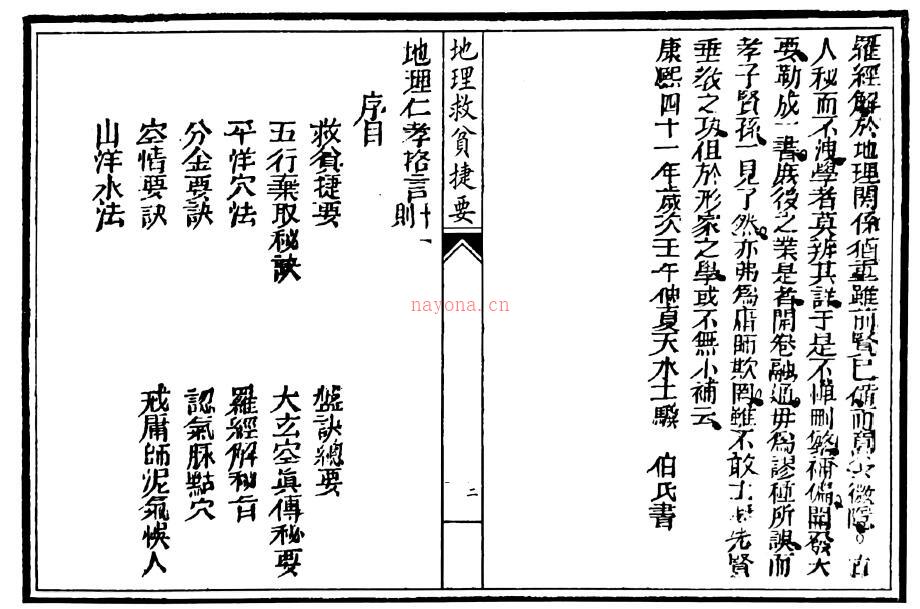 羅經解於地理關係猶重雖前賢已備而
人秘而不洩學者莫辨其詳于是不憚刪繁補偏開發大
要勒成一書底後之業是者開卷融通毋為謬種所誤而
孝子賢孫一見了然亦弗為庸師欺罔雖不敢上先賢
垂教之功但於形家之學或不無小補云
康熙四十一年歲次壬午仲夏天水士驥 伯氏書
地理救貧捷要
二
地理仁孝格言十一則
序目
救貧捷要 盤訣總要
五行棄取秘訣 大玄空真傳秘要
平洋穴法 羅經解秘旨
分金要訣 認氣脉點穴
空情要訣 戒庸師泥氣悮人
山洋水法
nayona.cn